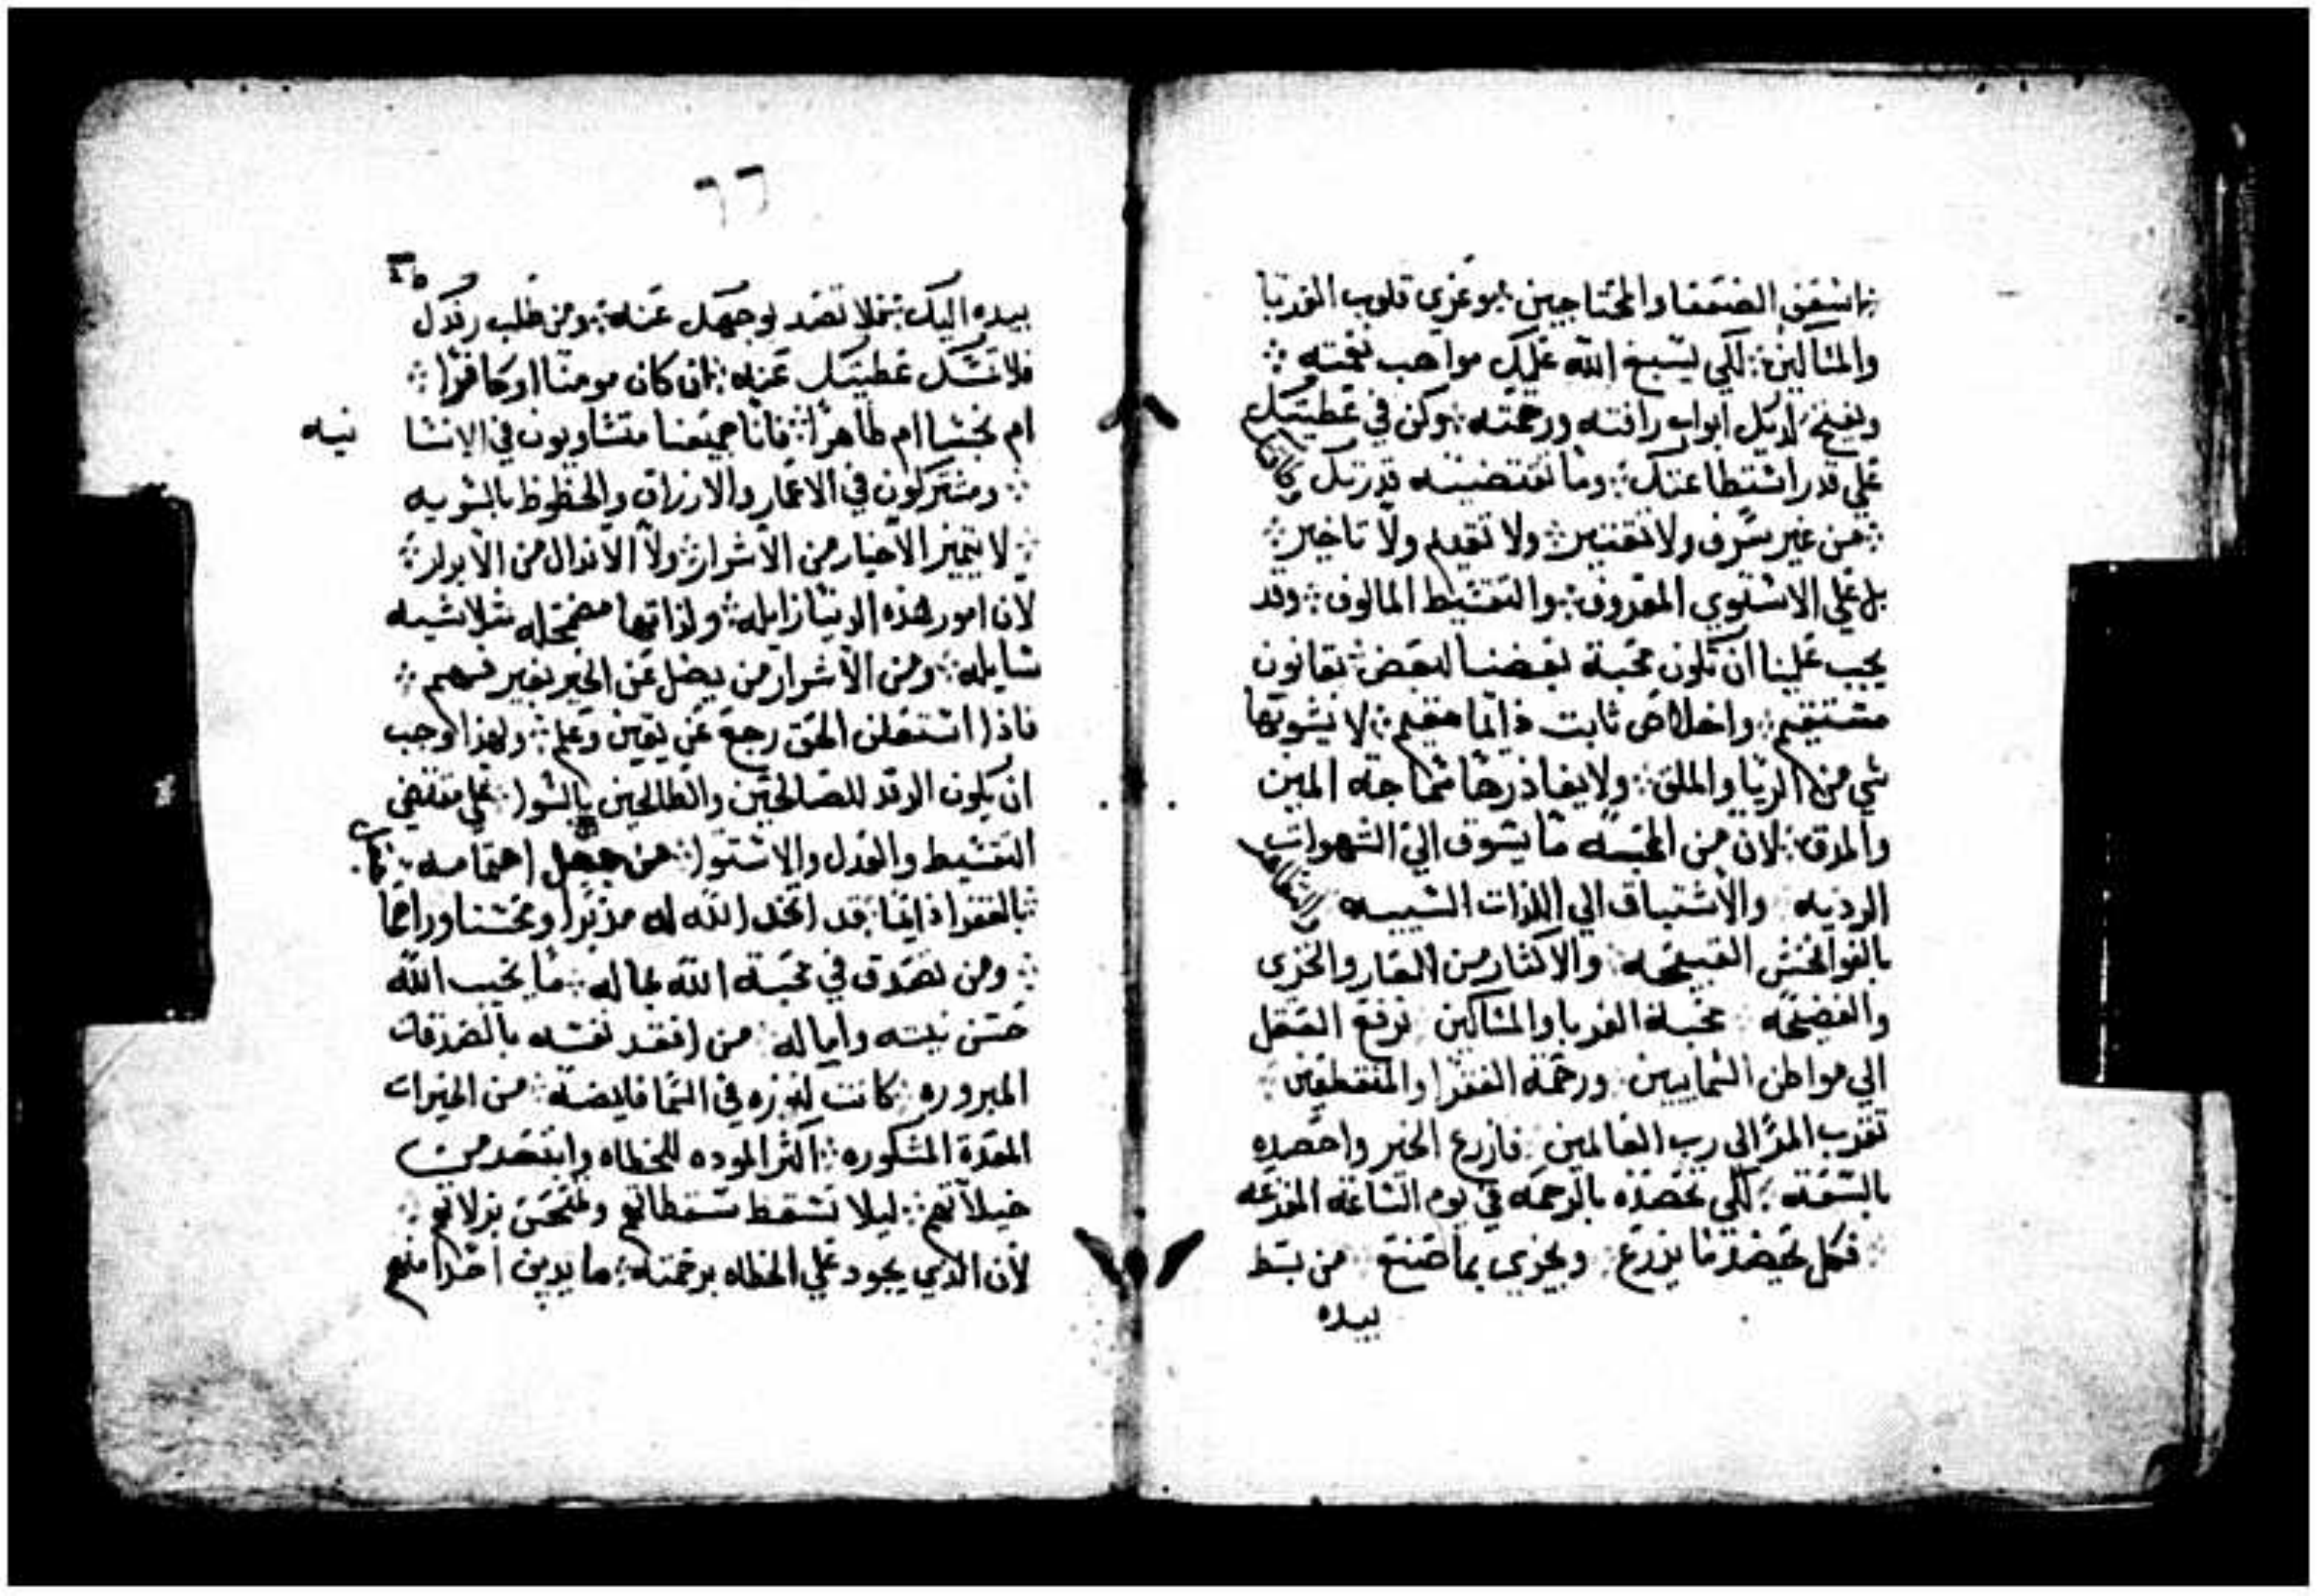 اشفق الضعفا والمحتاجين ፧ وعزي قلوب الغربا
والمساكين ፧ لكي يسبغ الله عليك مواهب نعمته ፧
ويفتح لديك ابواب رافته ورحمته ፧ وكن في عطيتك
علي قدر استطاعتك ፧ وما تقتضيه قدرتك
من غير سرف ولا تقتير ፧ ولا تقديم ولا تاخير ፧
بل علي الاستوي المعروف ፧ والتقسيط المالوف ፧ وقد
يجب علينا ان تكون محبة بعضنا لبعض ፧ بقانون
مستقيم ፧ واخلاص ثابت دايما مقيم ፧ لا يشوبها
شي من الريا والملق ፧ ولا يغادرها سماجة المين
والمدق ፧ لان من المحبه ما يشوق الي الشهوات
الرديه والاشتياق الي اللذات الشبيبه والتظاهر
بالفواحش القبيحه والاكثار من العار والخزي
والفضيحه محبة الغربا والمساكين ترفع العقل
الي مواطن السمايين ورحمة الفقرا والمنقطعين
تقرب المرا الي رب العالمين فازرع الخبر واحصده
بالسعه ፧ لكي تحصده بالرحمه في يوم الساعه المفزعه
فكل يحصد ما يزرع ويجزي بما صنع من بسط
بيده
٦٦
٢٥
بيده اليك ፧ فلا تصد بوجهك عنه ፧ ومن طلب رفدك
فلا تمسك عطيتك عنه ፧ ان كان مومنا او كافرا ፧
ام نجسا ام طاهرا ፧ فانا جميعنا متساويون في الانسا نيه
ومشتركون في الاعمار والارزاق والحظوظ بالسويه
لا يتميز الاخيار من الاشرار ፧ ولا الاندال من الابرار ፧
لان امور هذه الدنيا زايله ፧ ولذاتها مضمحله متلاشيه
شايله ፧ ومن الاشرار من يضل عن الخير بغير فهم ፧
فاذا استعلن الحق رجع عن يقين وعلم ፧ ولهذا وجب
ان يكون الرفد للصالحين والطالحين بالسوا ፧ علي مقتضي
التقسيط والعدل والاستوا ፧ من جعل اهتمامه
بالفقرا دايما ፧ قد اتخد الله له مدبرا ومحسنا وراحما
ومن تصدق في محبة الله بماله ፧ ما يخيب الله
حسن نيته واماله ፧ من افتقد نفسه بالصدقات
المبروره ፧ كانت له بزه في السما فايضه ፧ من الخيرات
المعدة المشكوره ፧ اكثر الموده للخطاه وابتعد من
خيلاتهم ፧ ليلا تسقط سقطاتهم وتلحق بزلاتهم ፧
لان الذي يجود علي الخطاه برحمته ፧ ما يدين احدا منهم